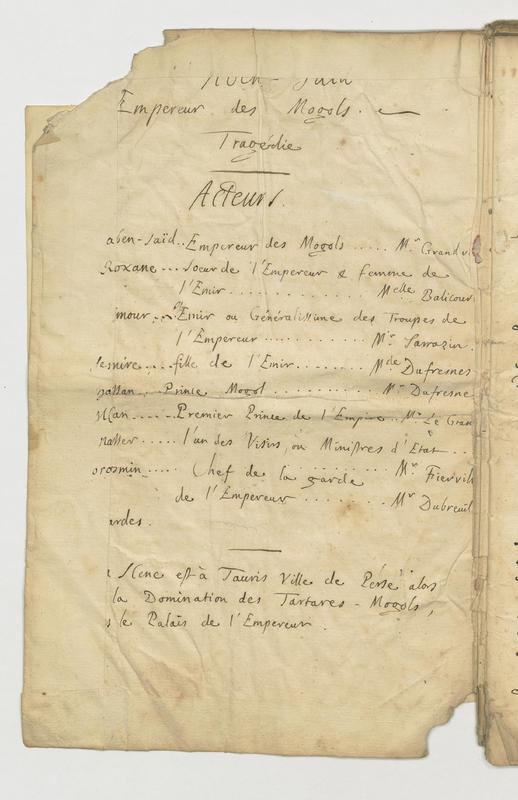 Empereur des Mogols.
Tragédie
Acteurs.
aben-saïd.. Empereur des Mogols ..... Mr Grandv
Roxane... Soeur de l'Empereur & femme de
l'Emir ............. Melle Balicour
imour... Emir ou Généralissime des Troupes de
l'Empereur ........... Mr Sarrazin
esmire.... fille de l'Emir ........ Mde Dufresnes
assan... Prince Mogol ........... Mr Dufresne
Premier Prince de l'Empire.. Mr Le Gran
nasser..... l'un des Visirs, ou Ministres d'Etat ...
Mr Fiervill
orosmin.... Chef de la garde
de l'Empereur ........ Mr Dubreuil
ardes.
Scene est à Tauris Ville de Perse alors
la Domination des Tartares-Mogols,
s le Palais de l'Empereur.